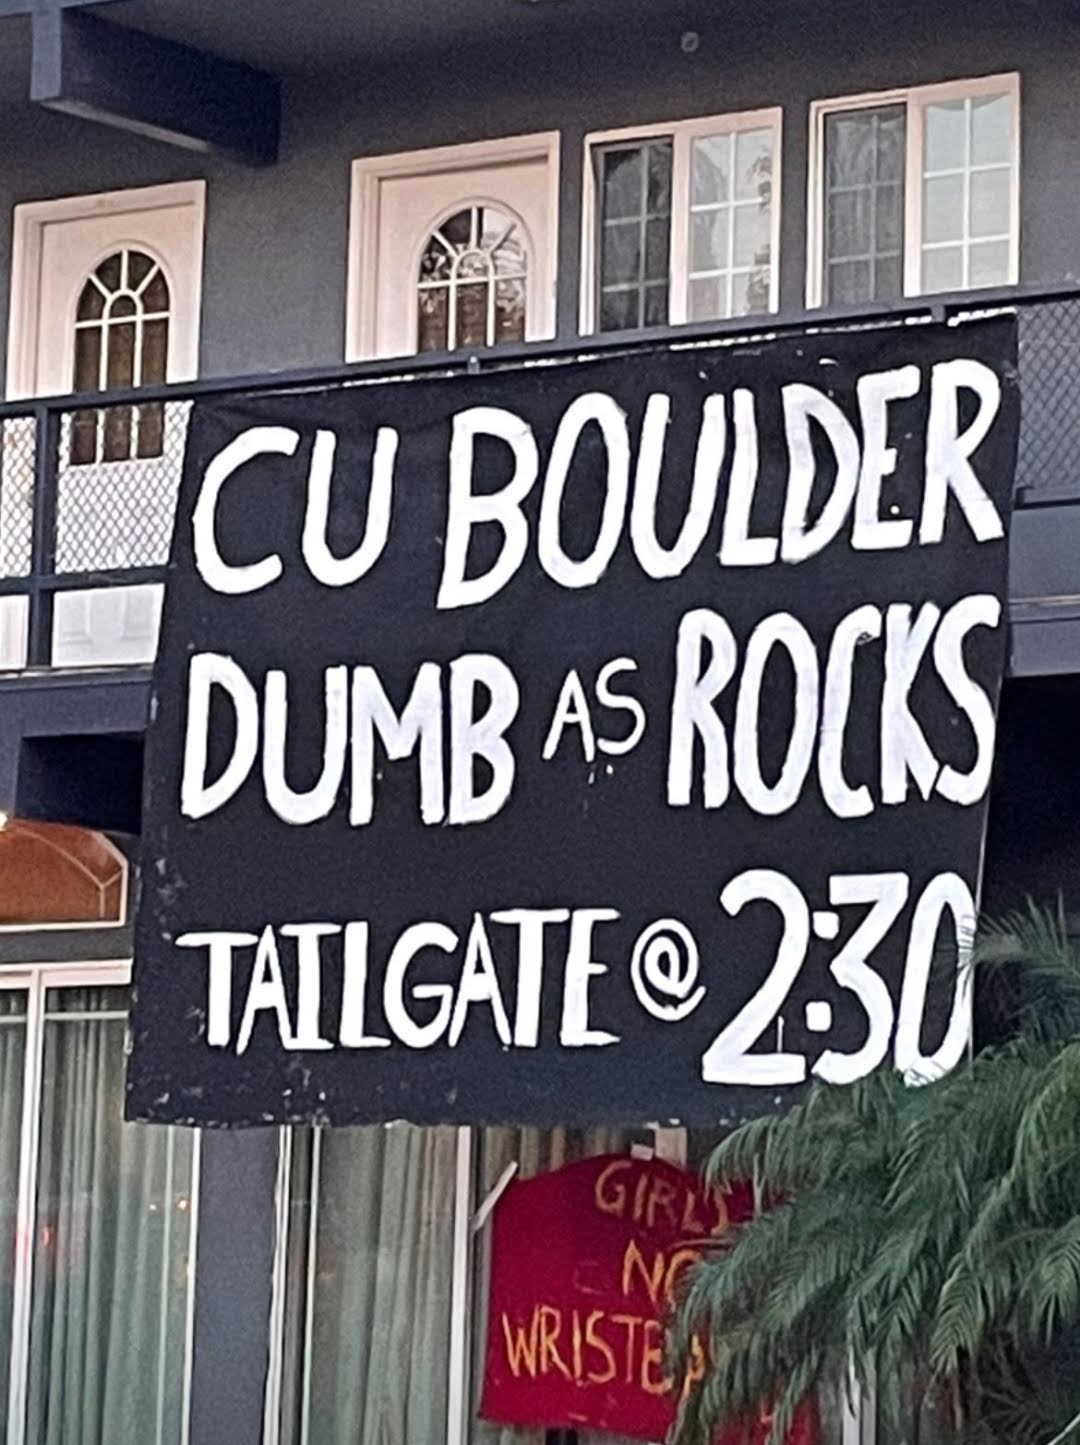 CU BOULDER
DUMB AS ROCKS
TAILGATE @ 2:30
GIRLS